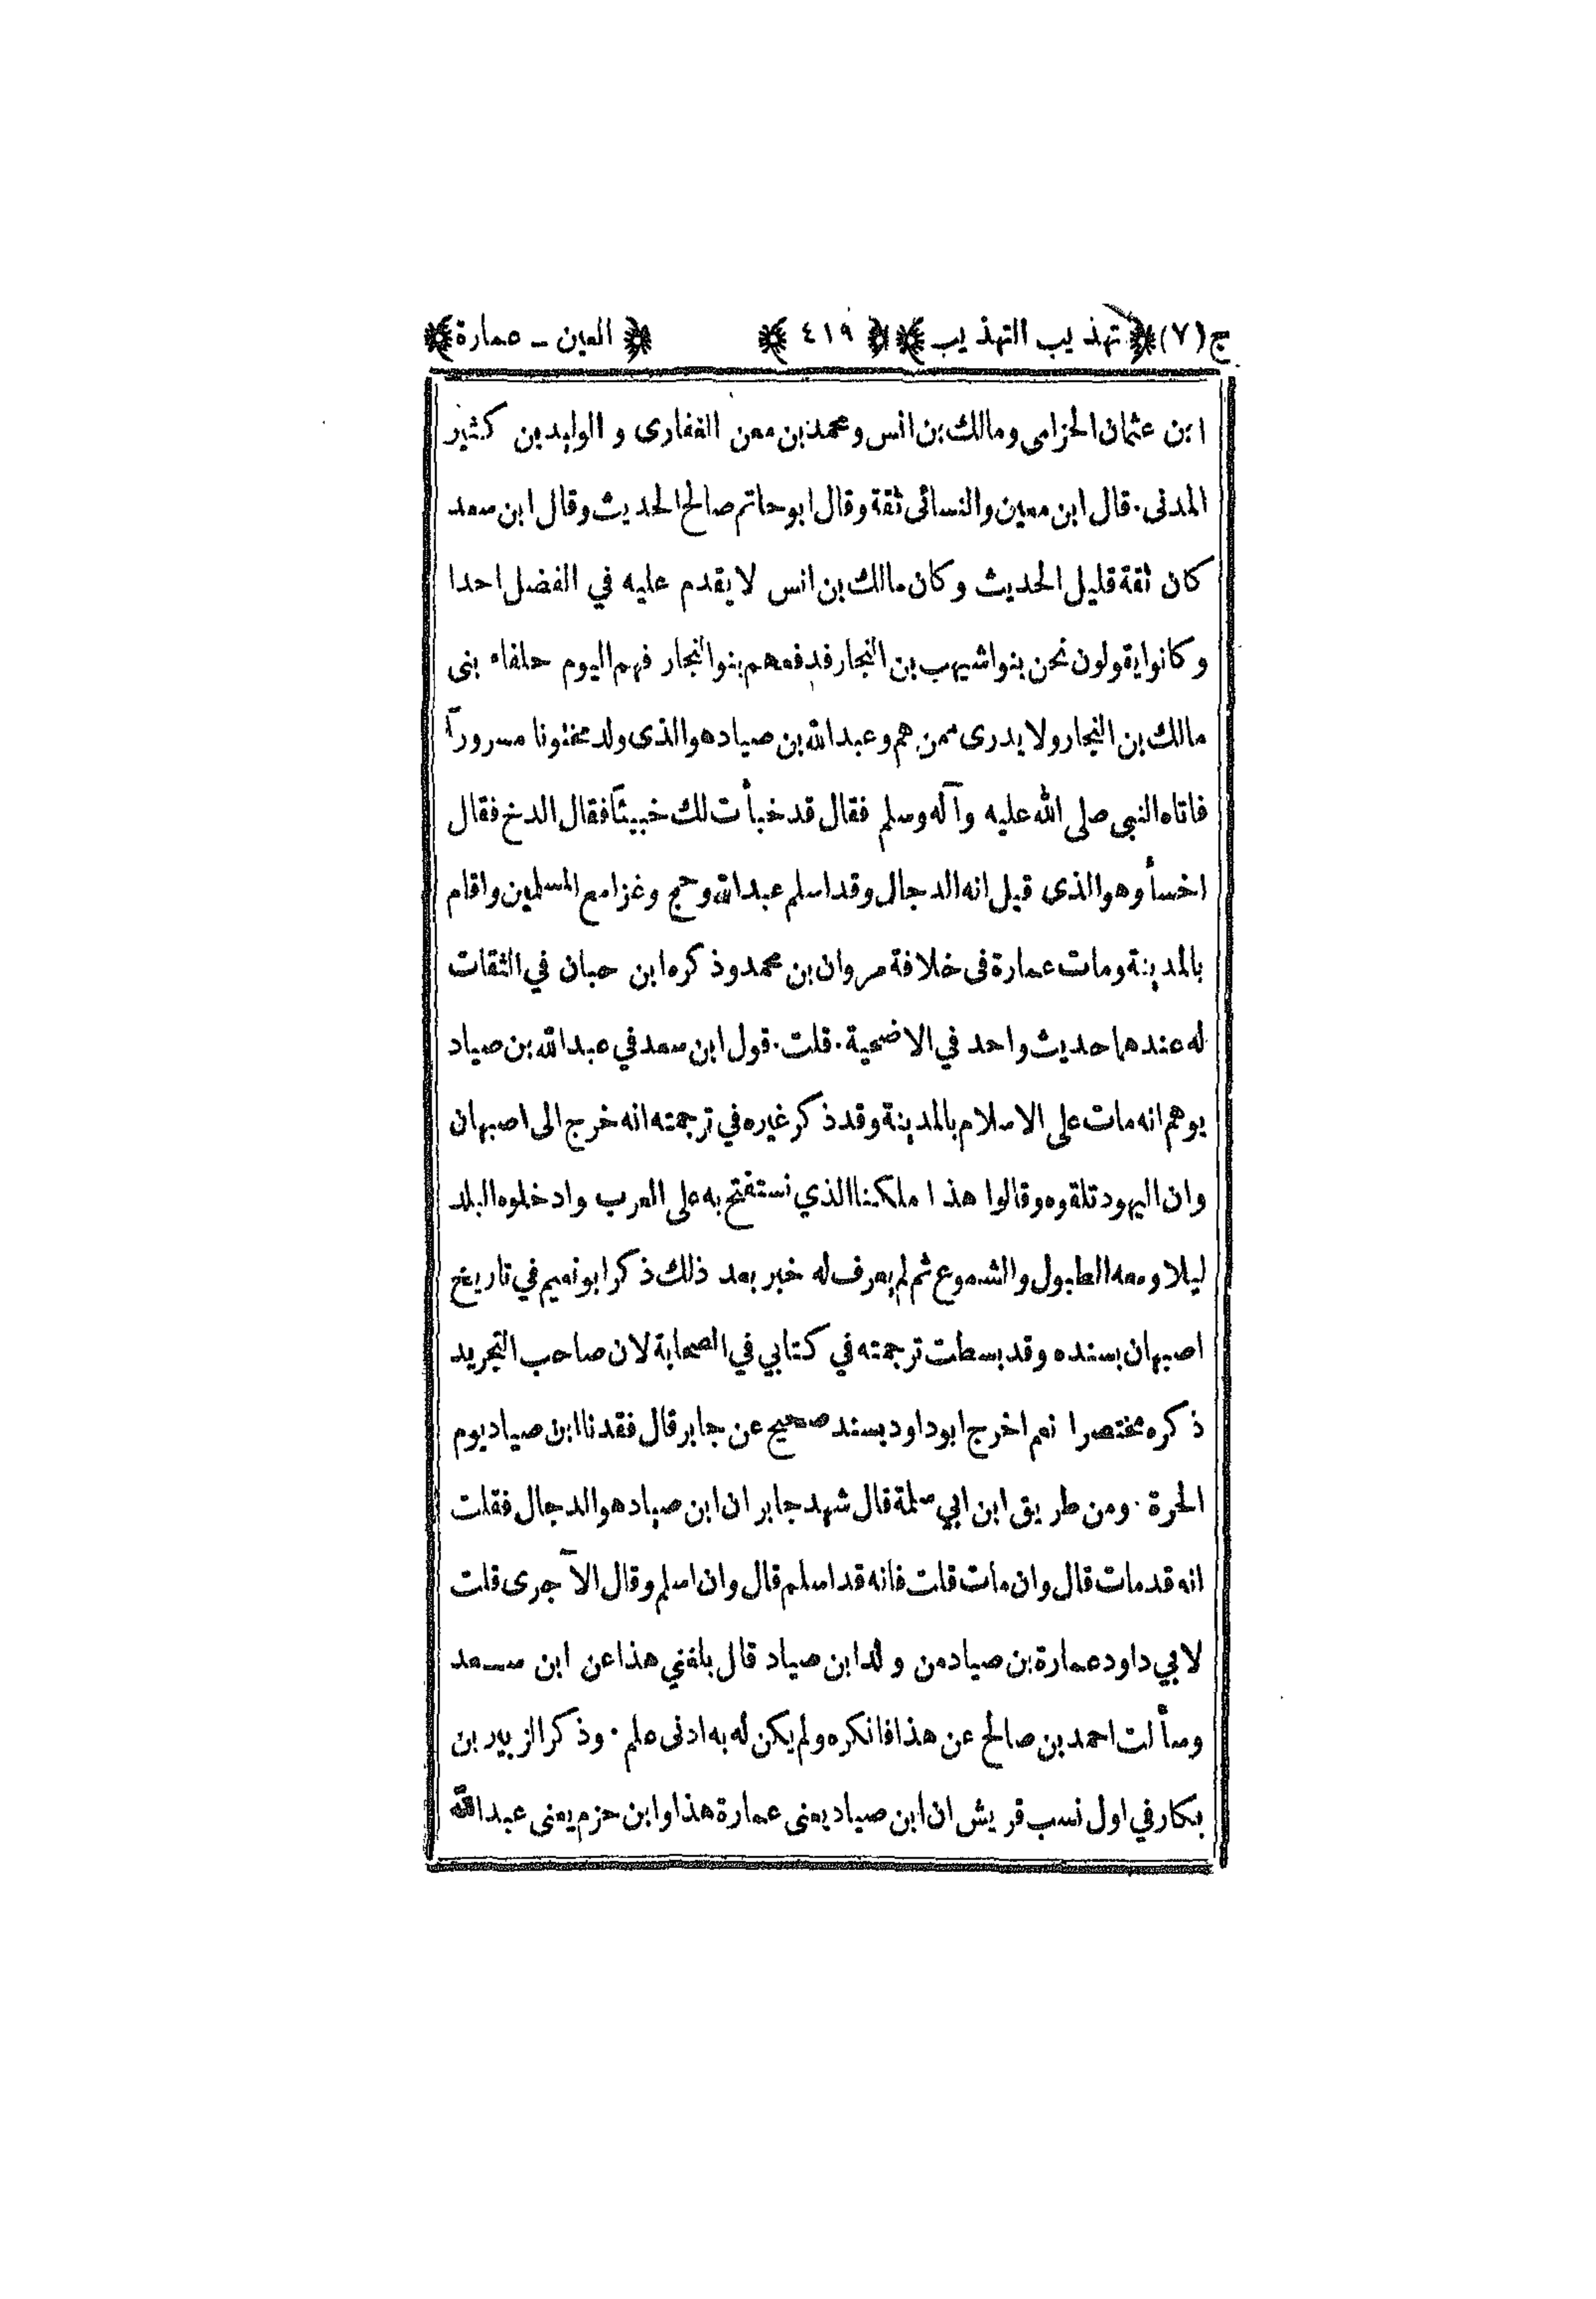 ج(٧) ﴿تهذيب التهذيب﴾ ﴿٤١٩﴾ ﴿العين - عمارة﴾
ابن عثمان الحزامى ومالك بن انس ومحمد بن معن الغفارى و الوليد بن كثير
المدنى. قال ابن معين والنسائى ثقة وقال ابو حاتم صالح الحديث وقال ابن سعد
كان ثقة قليل الحديث وكان مالك بن انس لا يقدم عليه في الفضل احدا
وكانوا يقولون نحن بنو اشيهب بن النجار فدفعهم بنو النجار فهم اليوم حلفاء بنى
مالك بن النجار ولا يدرى ممن هم وعبد الله بن صياد هو الذى ولد مختونا مسرورآ
فاتاه النبى صلى الله عليه وآله وسلم فقال قد خبأت لك خبيئآ فقال الدخ فقال
اخسأ وهو الذى قيل انه الدجال وقد اسلم عبد الله وحج وغزا مع المسلمين واقام
بالمدينة ومات عمارة فى خلافة مروان بن محمد وذكره ابن حبان في الثقات
له عندهما حديث واحد في الاضحية. قلت. قول ابن سعد في عبد الله بن صياد
يوهم انه مات على الاسلام بالمدينة وقد ذكر غيره في ترجمته انه خرج الى اصبهان
وان اليهود تلقوه وقالوا هذا ملكنا الذي نستفتح به على العرب وادخلوه البلد
ليلا ومعه الطبول والشموع ثم لم يعرف له خبر بعد ذلك ذكر ابو نعيم في تاريخ
اصبهان بسنده وقد بسطت ترجمته في كتابي في الصحابة لان صاحب التجريد
ذكره مختصرا نعم اخرج ابو داود بسند صحيح عن جابر قال فقدنا ابن صياد يوم
الحرة. ومن طريق ابن ابي سلمة قال شهد جابر ان ابن صياد هو الدجال فقلت
انه قد مات قال وان مات قلت فانه قد اسلم قال وان اسلم وقال الآجرى قلت
لابي داود عمارة بن صياد من ولد ابن صياد قال بلغني هذا عن ابن سعد
وسألت احمد بن صالح عن هذا فانكره ولم يكن له به ادنى علم. وذكر الزبير بن
بكار في اول نسب قريش ان ابن صياد يعنى عمارة هذا وابن حزم يعنى عبد الله